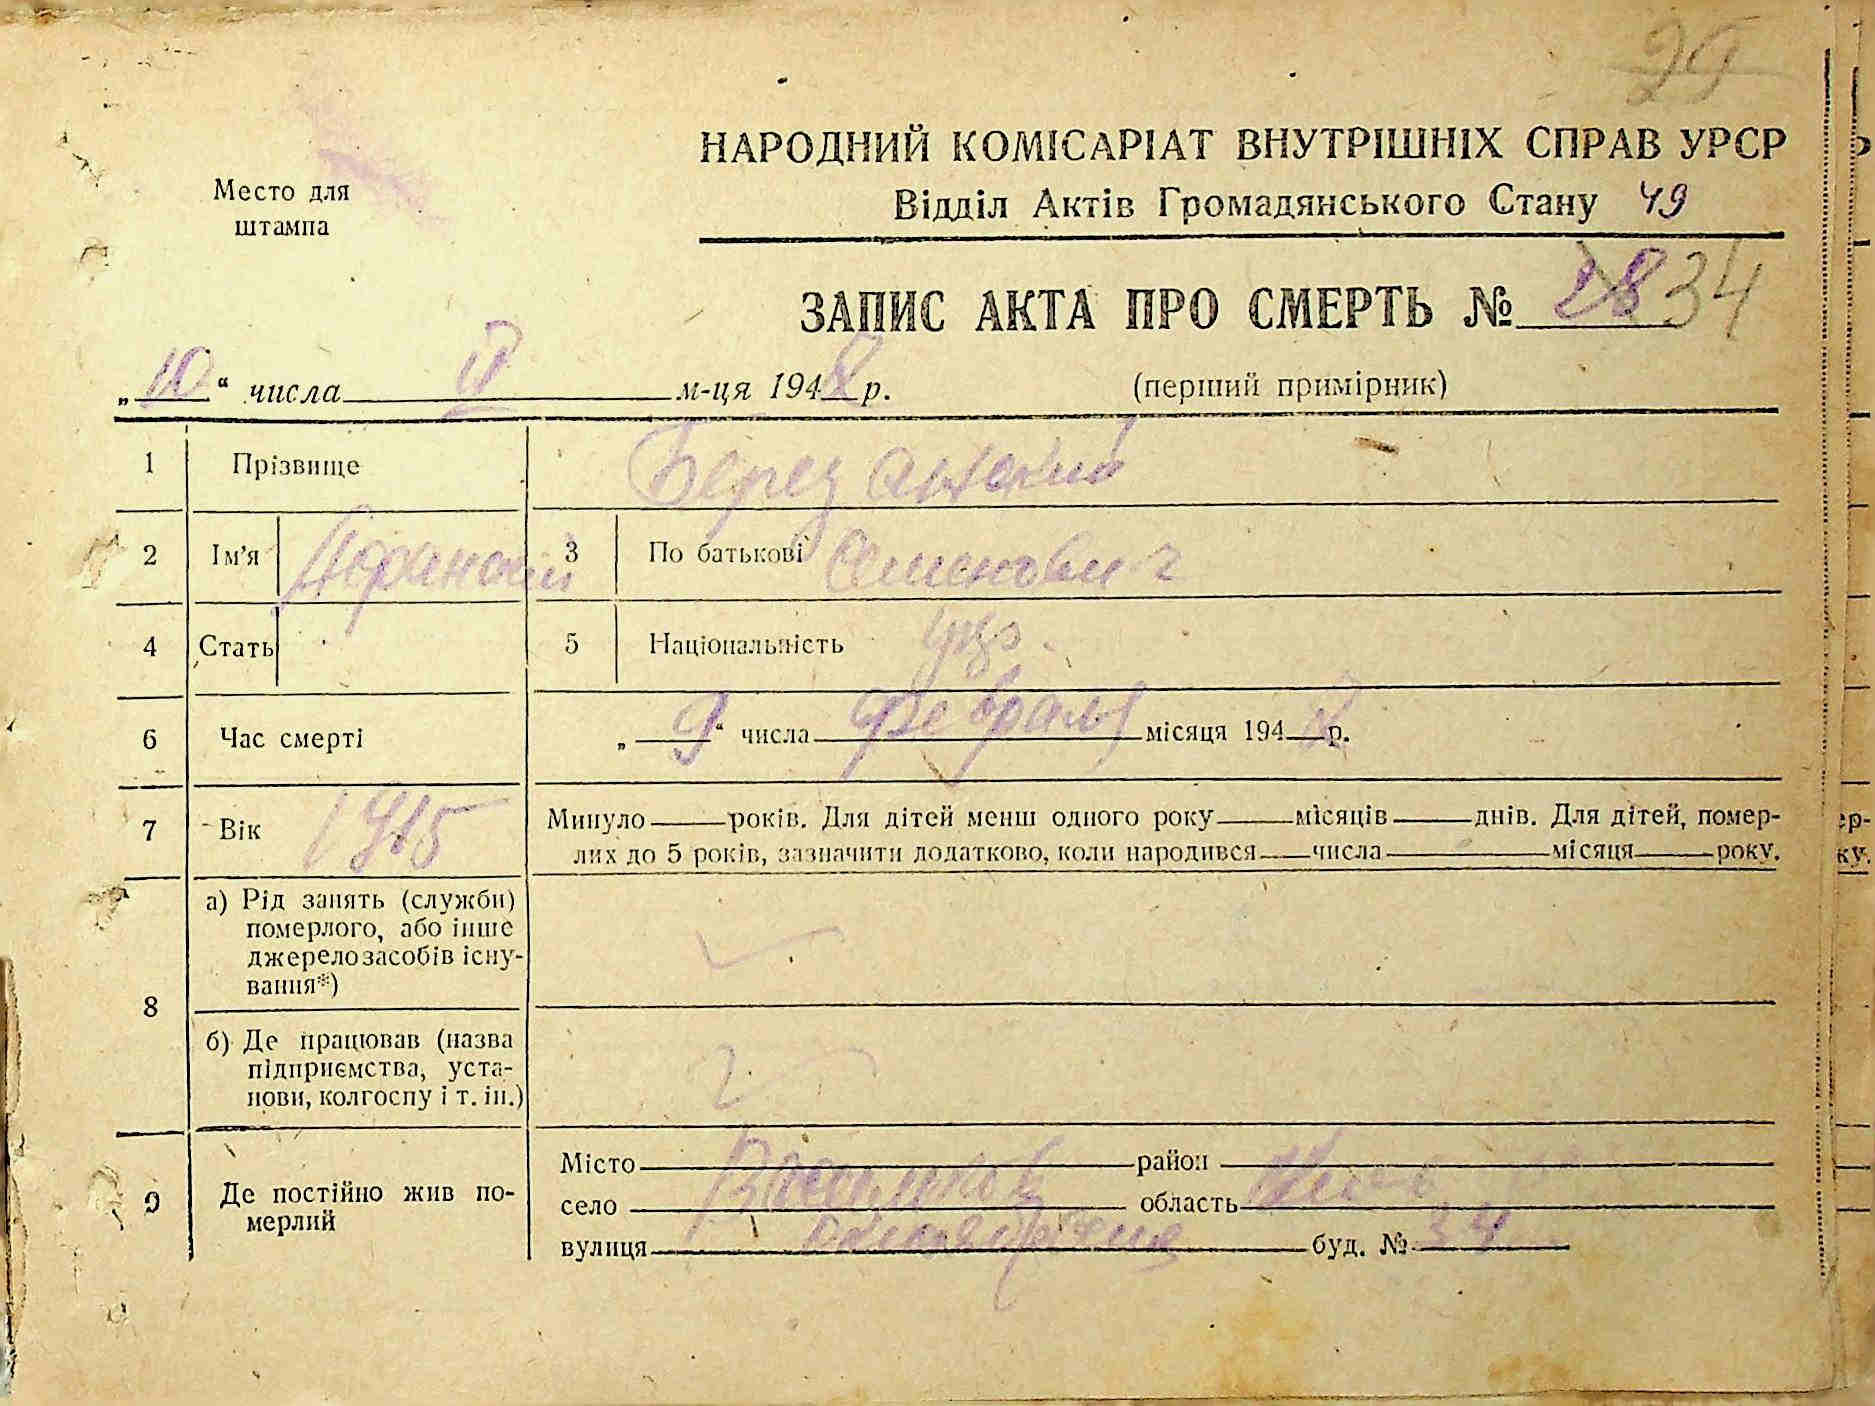 29
НАРОДНИЙ КОМІСАРІАТ ВНУТРІШНІХ СПРАВ УРСР
Место для штампа
Відділ Актів Громадянського Стану 49
ЗАПИС АКТА ПРО СМЕРТЬ № 28 34
„10“ числа II м-ця 1948 р. (перший примірник)
1 Прізвище Березанский
2 Ім'я 3 По батькові Семенович
4 Стать 5 Національність укр.
6 Час смерті „9“ числа Февраля місяця 1948 р.
7 Вік 1915 Минуло року років. Для дітей менш одного року місяців днів. Для дітей, помер-
лих до 5 років, зазначити додатково, коли народився числа місяця року.
8 а) Рід занять (служби) померлого, або інше джерело засобів існування*)
б) Де працював (назва підприємства, установи, колгоспу і т. ін.)
9 Де постійно жив померлий
Місто район
село Васильков область
вулиця буд. № 34